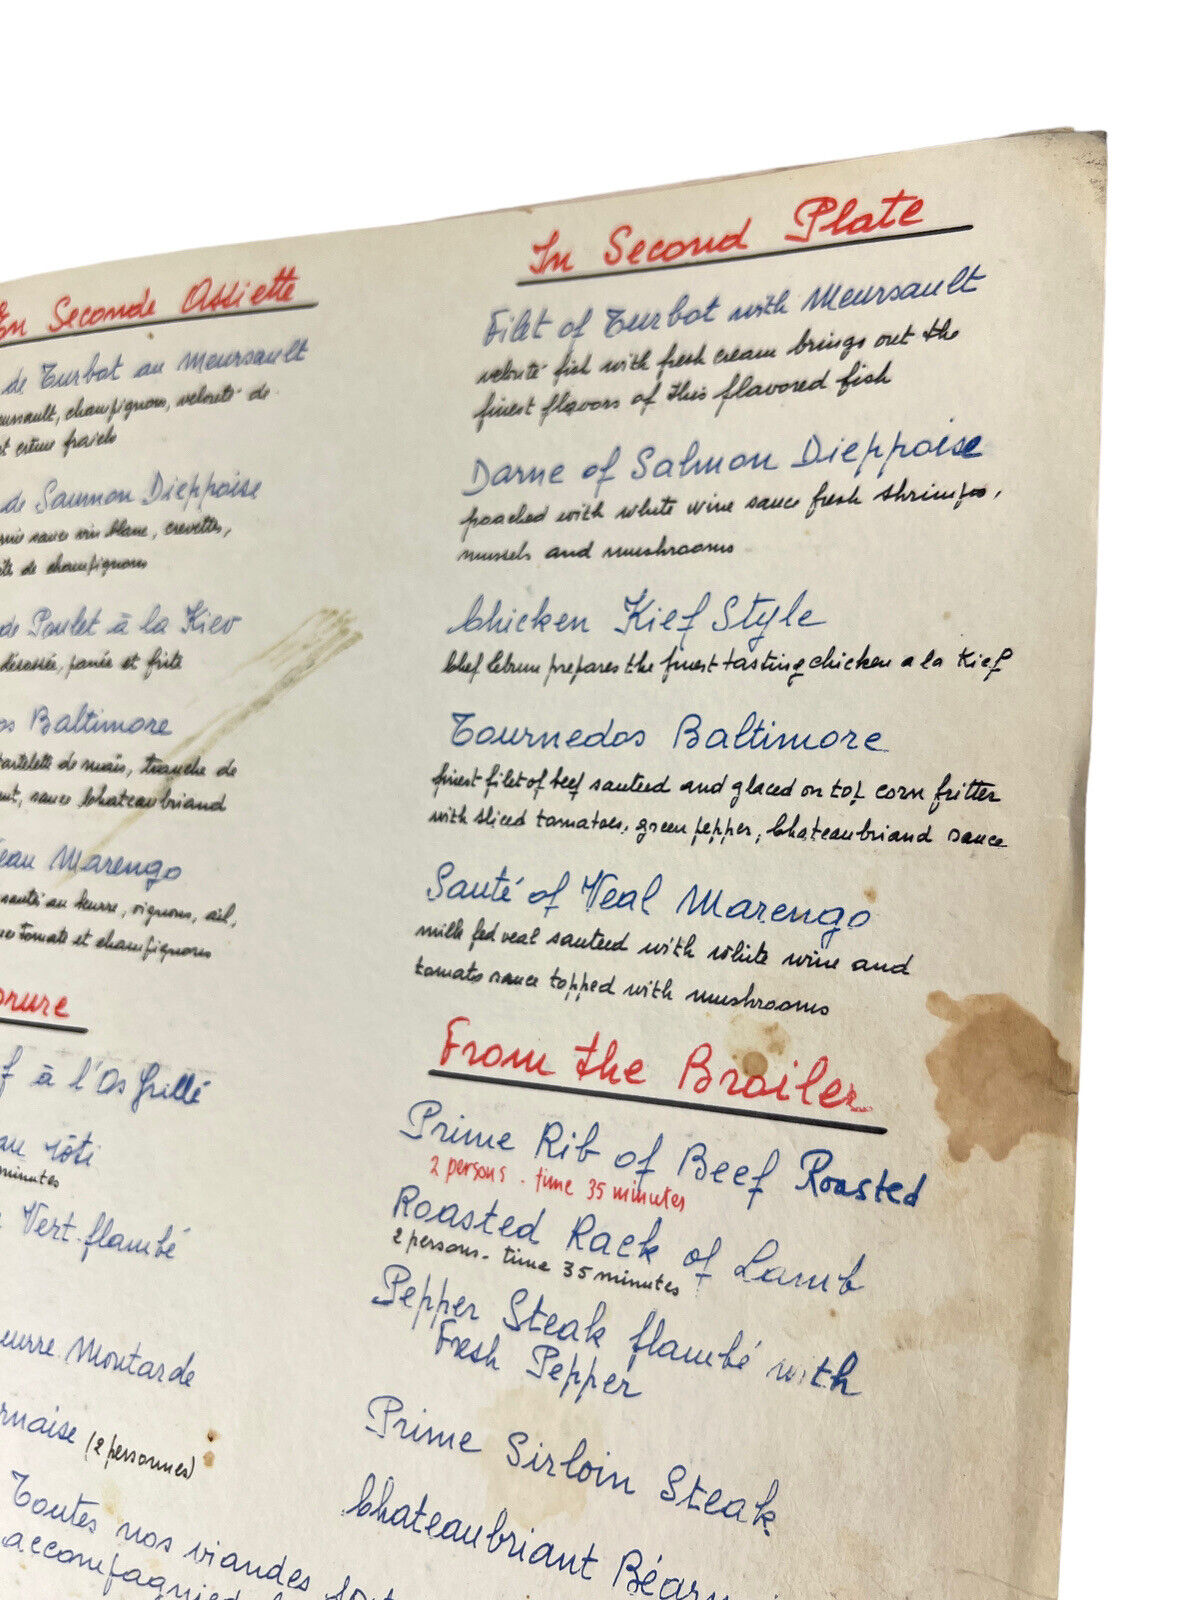 En Seconde Assiette
de Turbot au Meursault
champignons, velouté de
et crème fraiche
de Saumon Dieppoise
sauce vin blanc, crevettes,
de champignons
de Poulet à la Kiev
désossée, panée et frite
Baltimore
tartelette de maïs, tranche de
sauce Chateaubriand
Marengo
sauté au beurre, oignons, ail,
tomate et champignons
à l'Os Grillé
rôti
minutes
Vert flambé
Moutarde
(2 personnes)
Toutes nos viandes
In Second Plate
Filet of Turbot with Meursault
velouté fish with fresh cream brings out the
finest flavors of this flavored fish
Darne of Salmon Dieppoise
poached with white wine sauce fresh shrimps,
mussels and mushrooms
Chicken Kief Style
Chef Lebrun prepares the finest tasting chicken a la Kief
Tournedos Baltimore
finest filet of beef sauteed and glaced on top corn fritter
with sliced tomatoes, green pepper, Chateaubriand sauce
Sauté of Veal Marengo
milk fed veal sauteed with white wine and
tomato sauce topped with mushrooms
From the Broiler
Prime Rib of Beef Roasted
2 persons - time 35 minutes
Roasted Rack of Lamb
2 persons - time 35 minutes
Pepper Steak flambé with
Fresh Pepper
Prime Sirloin Steak
Chateaubriant